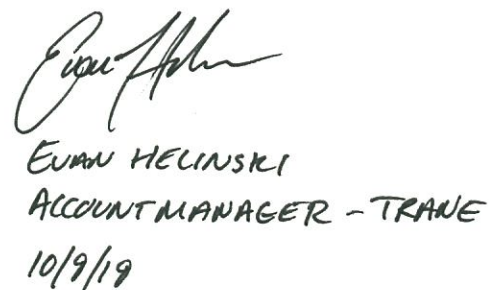 Evan Helinski
EVAN HELINSKI
ACCOUNT MANAGER - TRANE
10/9/19